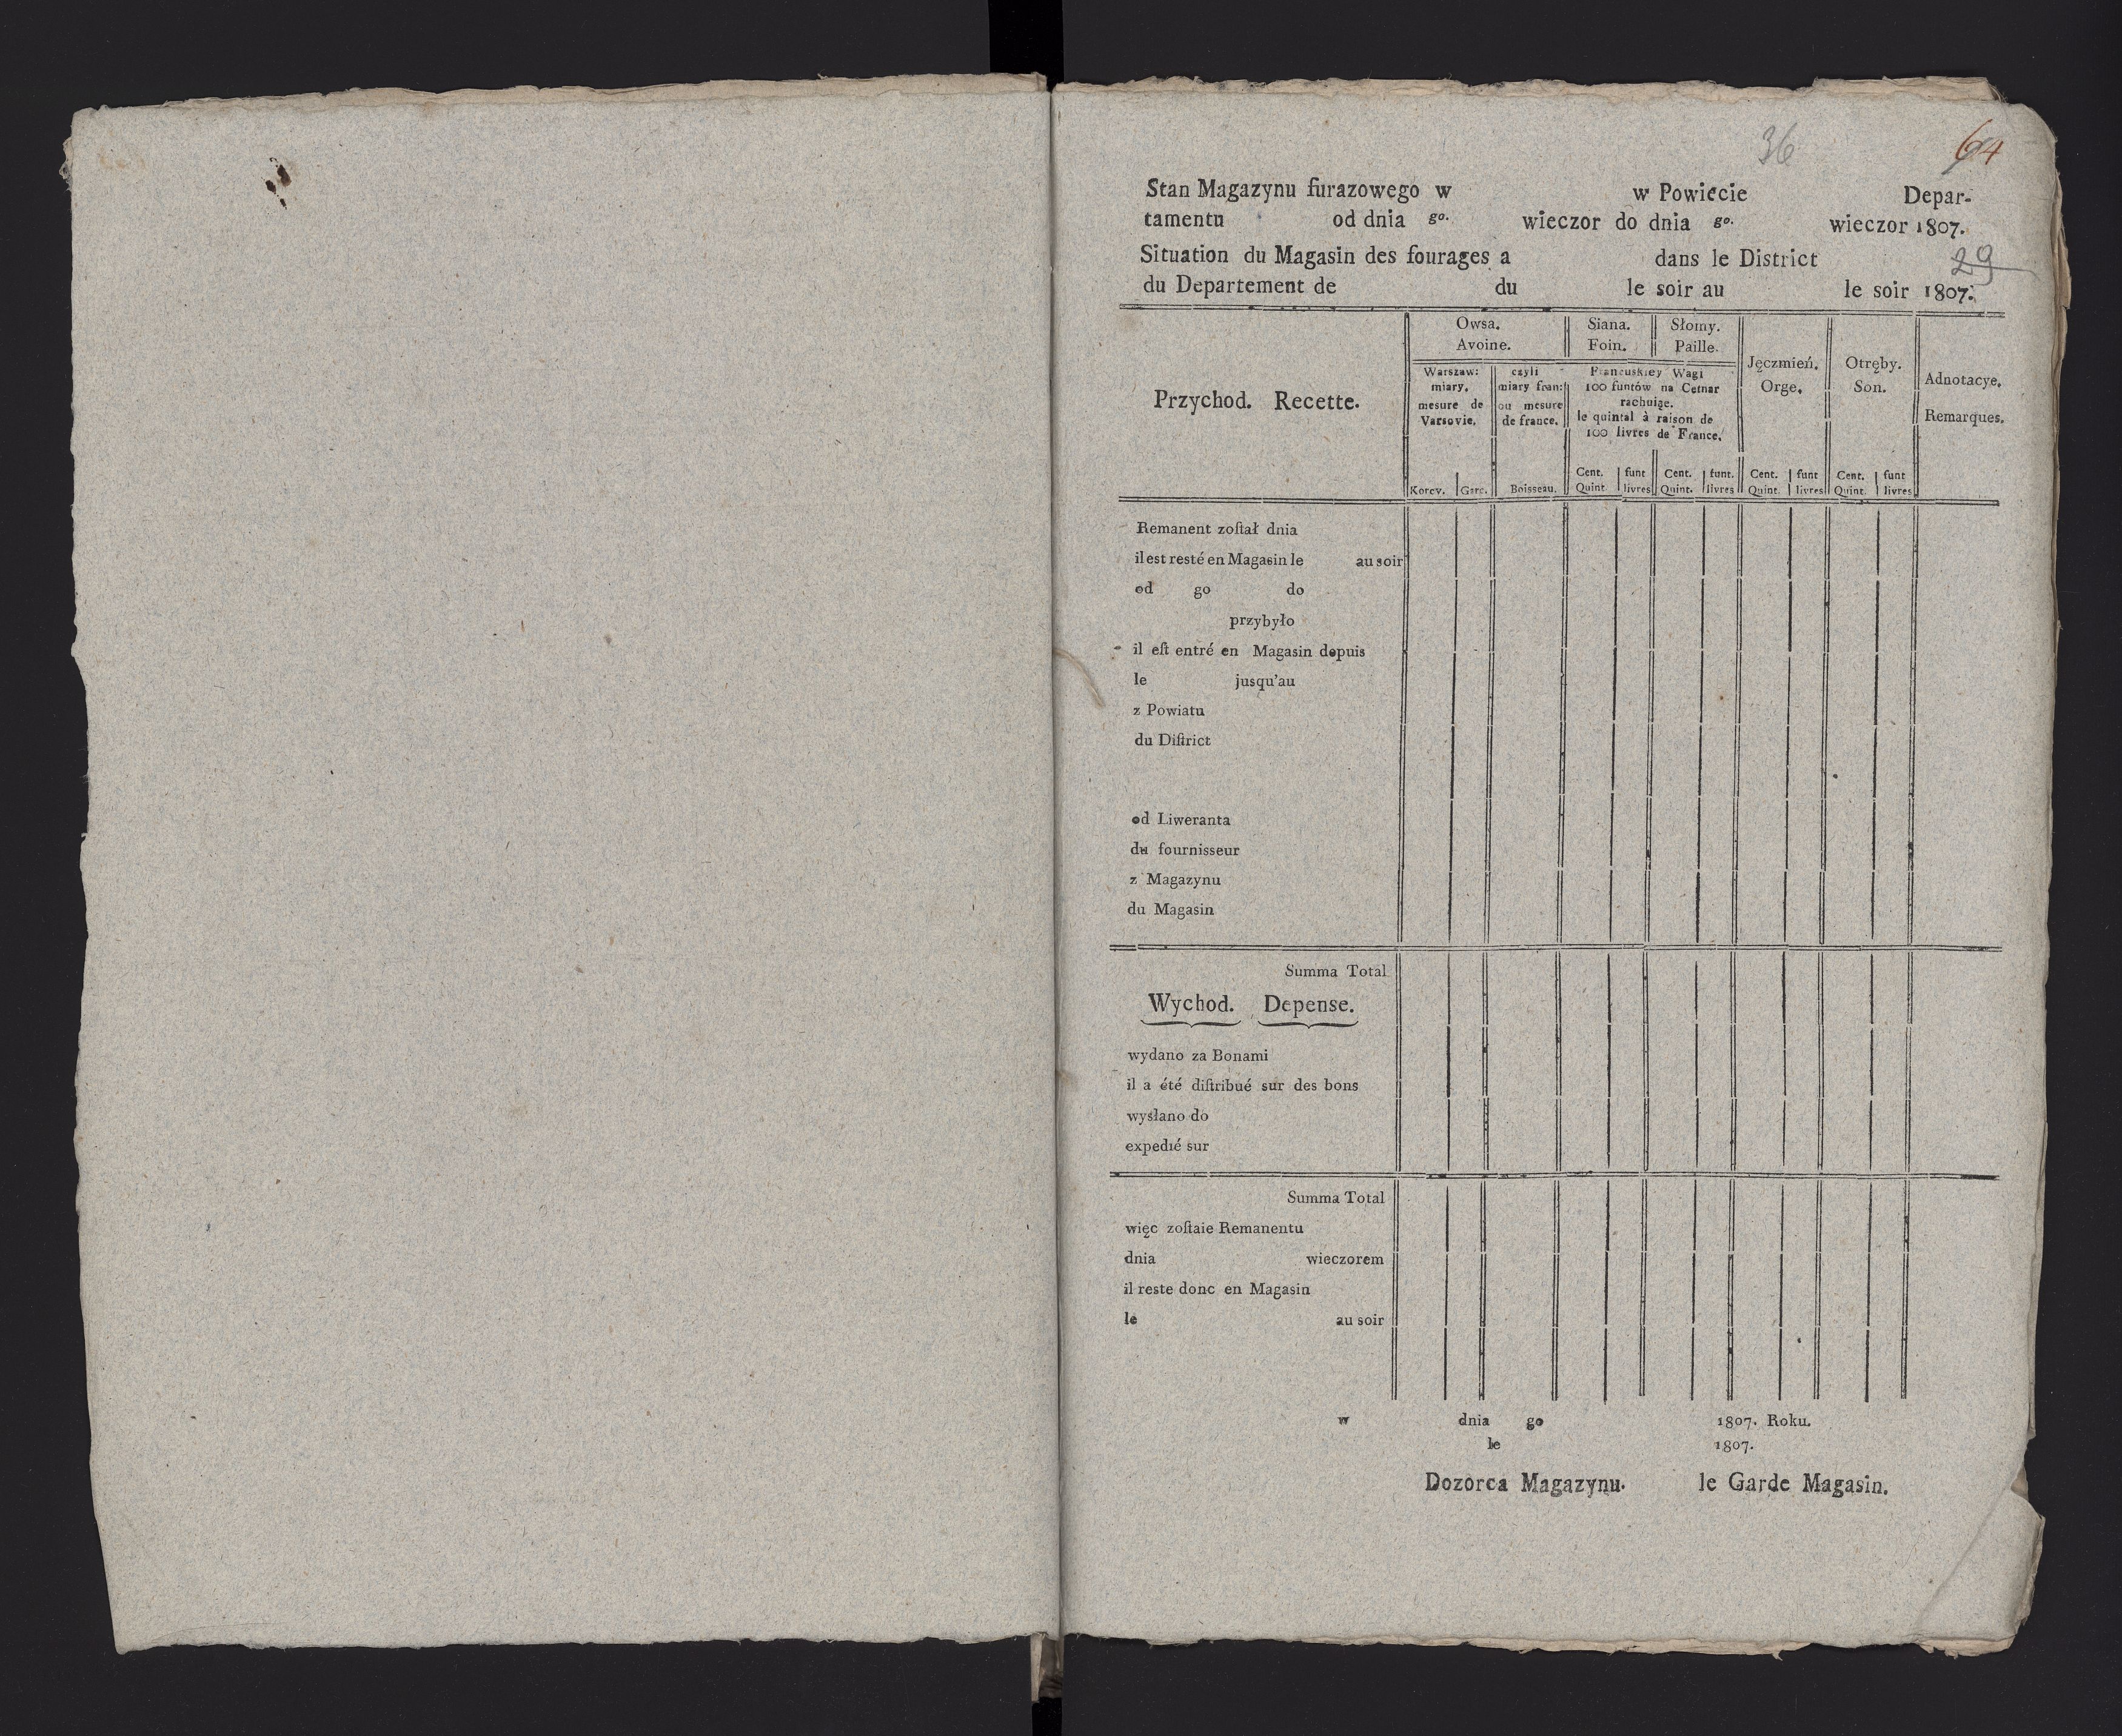 36
64
Stan Magazynu furazowego w w Powiecie Depar-
tamentu od dnia go. wieczor do dnia go. wieczor 1807.
Situation du Magasin des fourages a dans le District
29
du Departement de du le soir au le soir 1807.
Przychod. Recette.
Owsa.
Avoine.
Siana.
Foin.
Słomy.
Paille.
Jęczmień.
Orge.
Otręby.
Son.
Adnotacye.
Remarques.
Warszaw:
miary.
mesure de
Varsovie.
czyli
miary fran:
ou mesure
de france.
Francuskiey Wagi
100 funtów na Cetnar
rachuiąc.
le quintal à raison de
100 livres de France.
Korcy. Garc. Boisseau.
Cent. funt Cent. funt. Cent. funt Cent. funt
Quint. livres Quint. livres Quint. livres Quint. livres
Remanent zoſtał dnia
il est resté en Magasin le au soir
od go do
przybyło
il eſt entré en Magasin depuis
le jusqu'au
z Powiatu
du Diſtrict
od Liweranta
du fournisseur
z Magazynu
du Magasin
Summa Total
Wychod. Depense.
wydano za Bonami
il a été diſtribué sur des bons
wysłano do
expedié sur
Summa Total
więc zoſtaie Remanentu
dnia wieczorem
il reste donc en Magasin
le au soir
w dnia go 1807. Roku.
le 1807.
Dozorca Magazynu. le Garde Magasin.